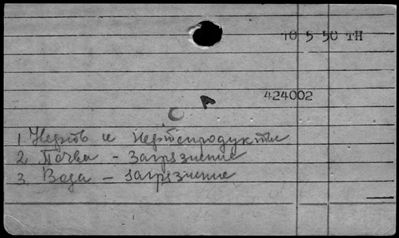 10 5 50 TH
424002
1 Нефть и нефтепродукты
2. Почва - Загрязнение
3. Вода - загрязнение